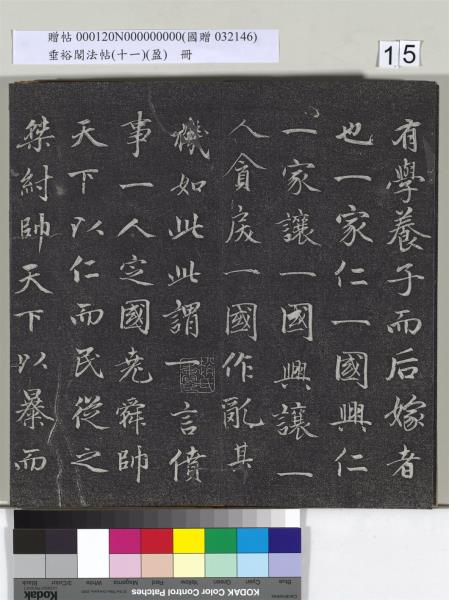 贈帖 000120N000000000(國贈 032146)
垂裕閣法帖(十一)(盈) 冊
15
有學養子而后嫁者
也一家仁一國興仁
一家讓一國興讓一
人貪戾一國作亂其
機如此此謂一言僨
事一人定國堯舜帥
天下以仁而民從之
桀紂帥天下以暴而
Blue
Cyan
Green
Yellow
Red
Magenta
White
3/Color
Black
Kodak
KODAK Color Control Patches